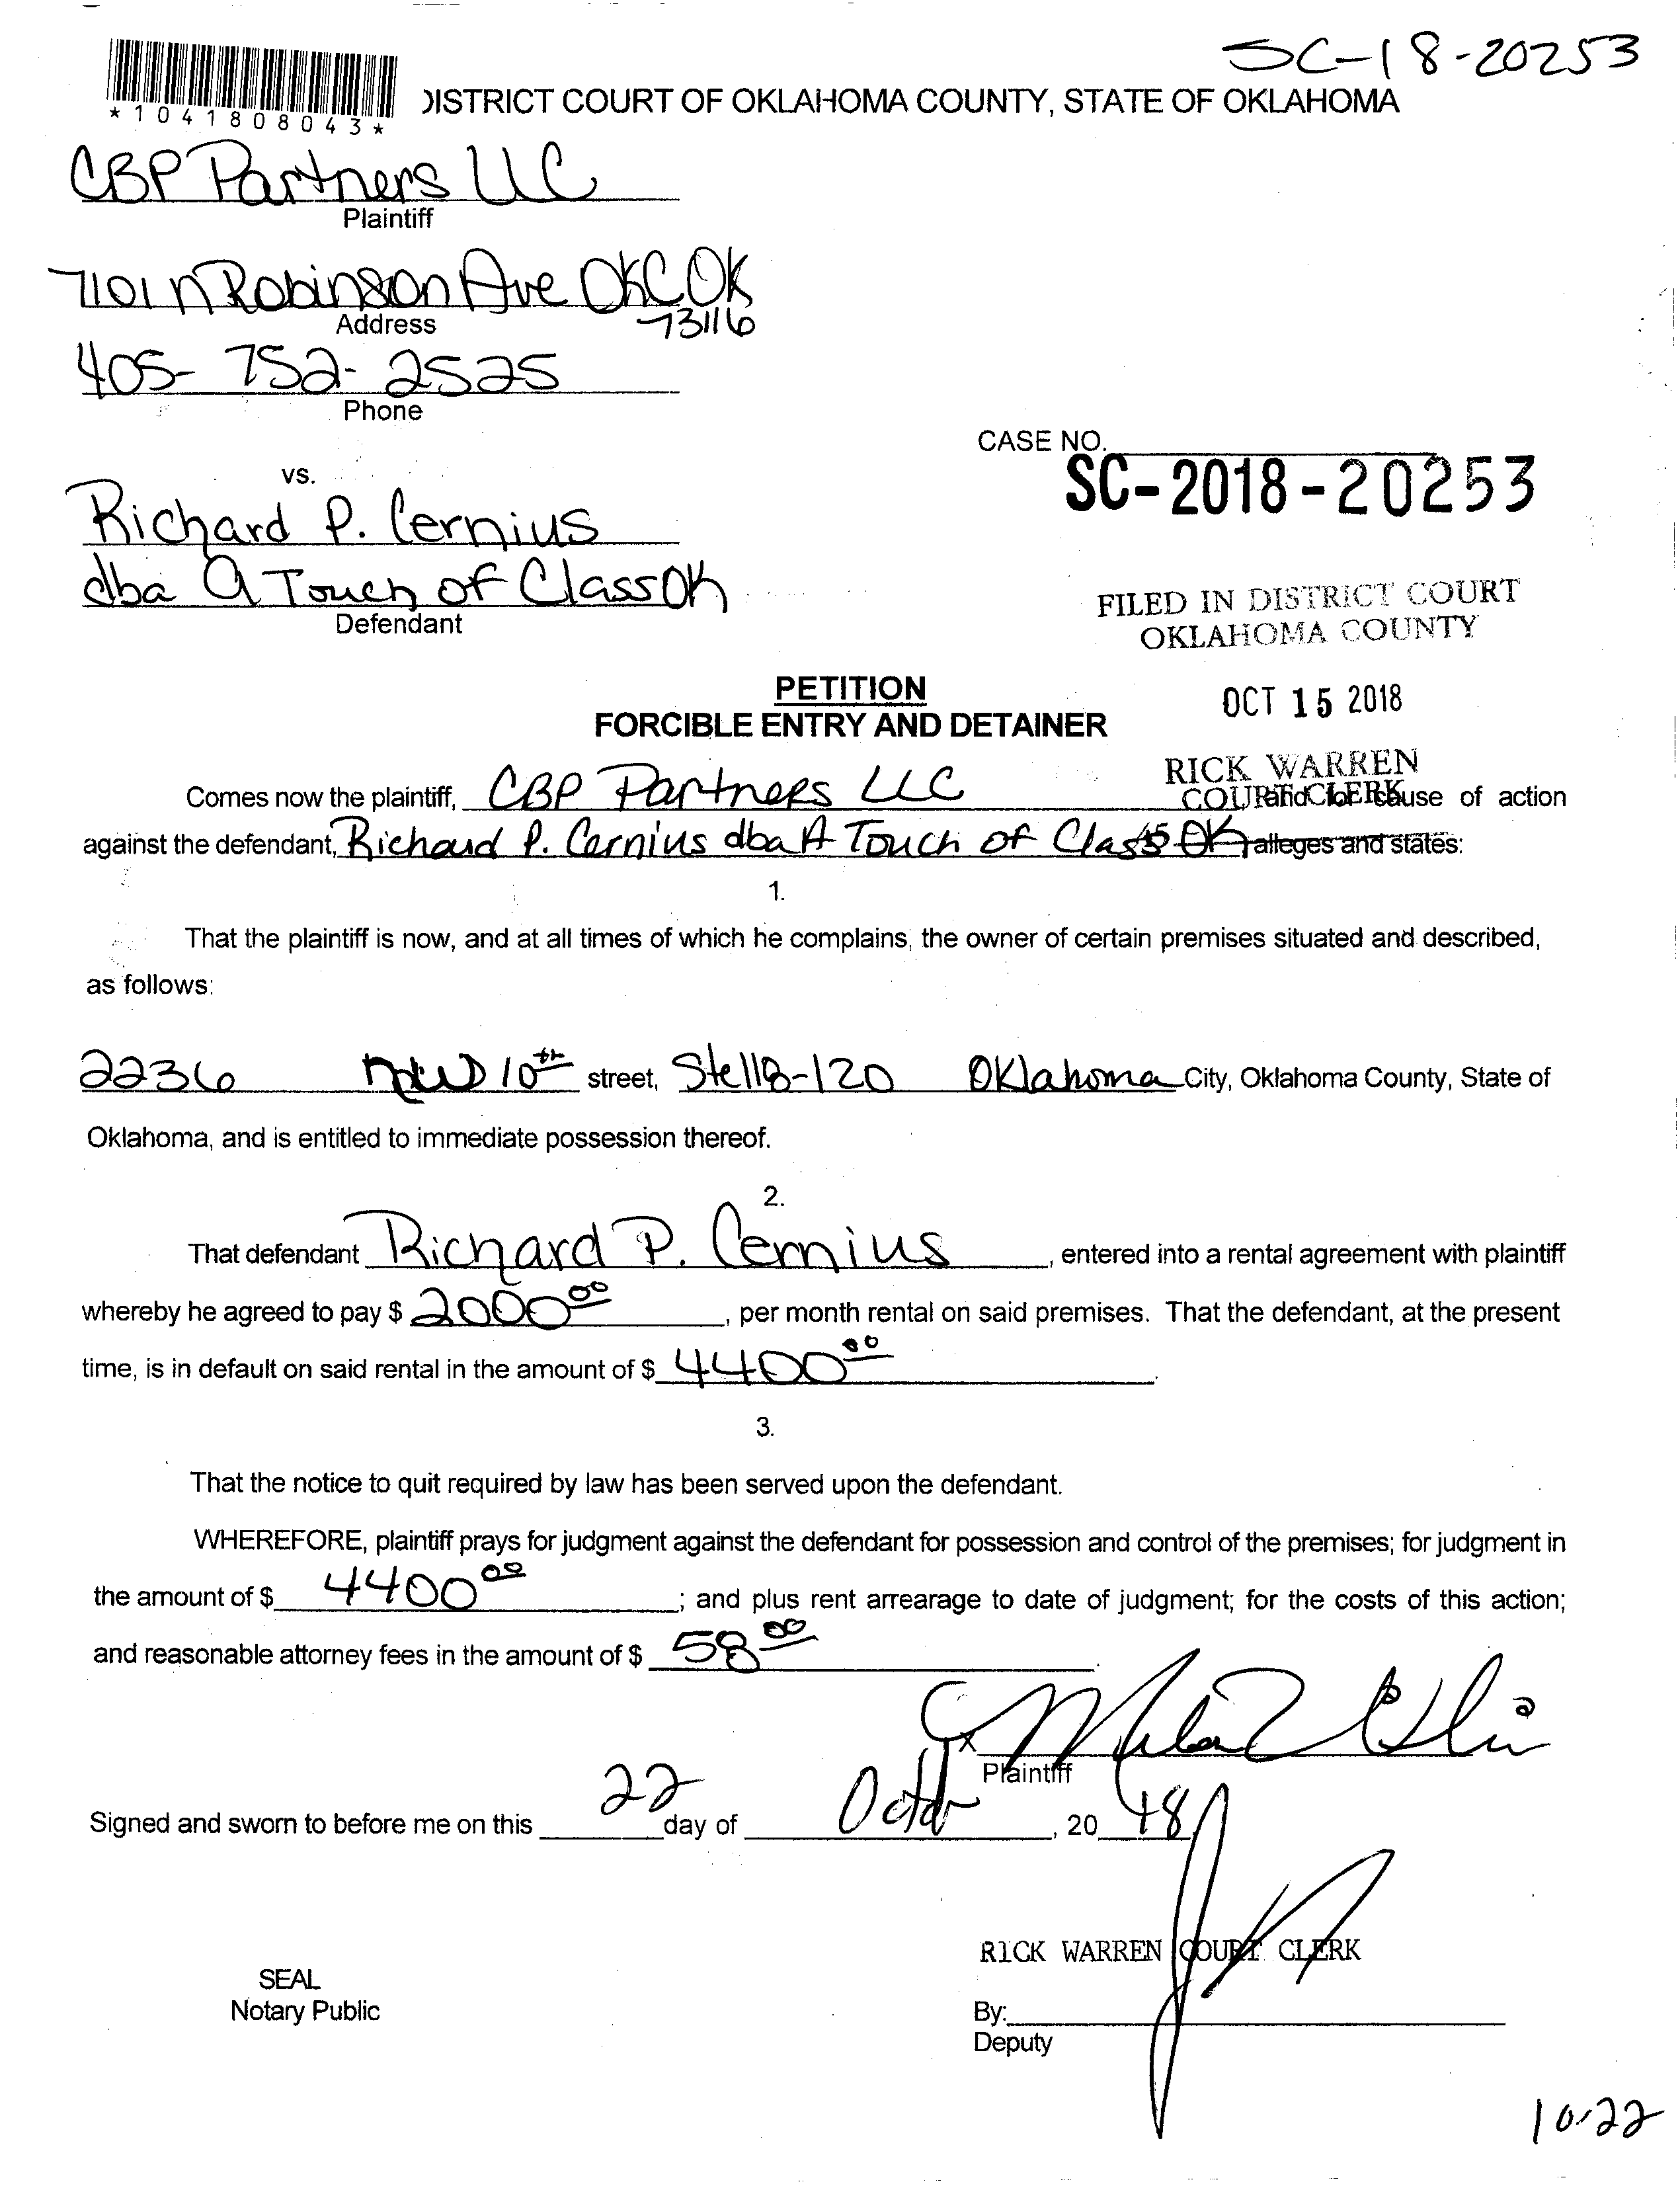 SC-18-20253
*1041808043*
DISTRICT COURT OF OKLAHOMA COUNTY, STATE OF OKLAHOMA
CBP Partners LLC
Plaintiff
7101 N Robinson Ave OKC OK
73116
Address
405-752-2525
Phone
CASE NO.
SC-2018-20253
vs.
Richard P. Cernius
dba A Touch of Class OK
Defendant
FILED IN DISTRICT COURT
OKLAHOMA COUNTY
OCT 15 2018
RICK WARREN
COURT CLERK
PETITION
FORCIBLE ENTRY AND DETAINER
Comes now the plaintiff, CBP Partners LLC and for cause of action
against the defendant, Richard P. Cernius dba A Touch of Class OK alleges and states:
1.
That the plaintiff is now, and at all times of which he complains, the owner of certain premises situated and described,
as follows:
2236 NW 10th street, Ste 118-120 Oklahoma City, Oklahoma County, State of
Oklahoma, and is entitled to immediate possession thereof.
2.
That defendant Richard P. Cernius, entered into a rental agreement with plaintiff
whereby he agreed to pay $ 2000.00, per month rental on said premises. That the defendant, at the present
time, is in default on said rental in the amount of $ 4400.00.
3.
That the notice to quit required by law has been served upon the defendant.
WHEREFORE, plaintiff prays for judgment against the defendant for possession and control of the premises; for judgment in
the amount of $ 4400.00; and plus rent arrearage to date of judgment; for the costs of this action;
and reasonable attorney fees in the amount of $ 58.00.
X
Plaintiff
Signed and sworn to before me on this 22 day of Octob, 20 18
RICK WARREN COURT CLERK
SEAL
Notary Public
By:
Deputy
10-22